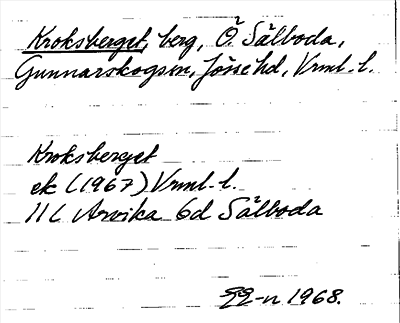 Kroksberget, berg, Ö. Sälboda,
Gunnarskogssn, Jösse hd, Vrml. l.
Kroksberget
ek (1967) Vrml. l.
11C Arvika 6d Sälboda
-n 1968.